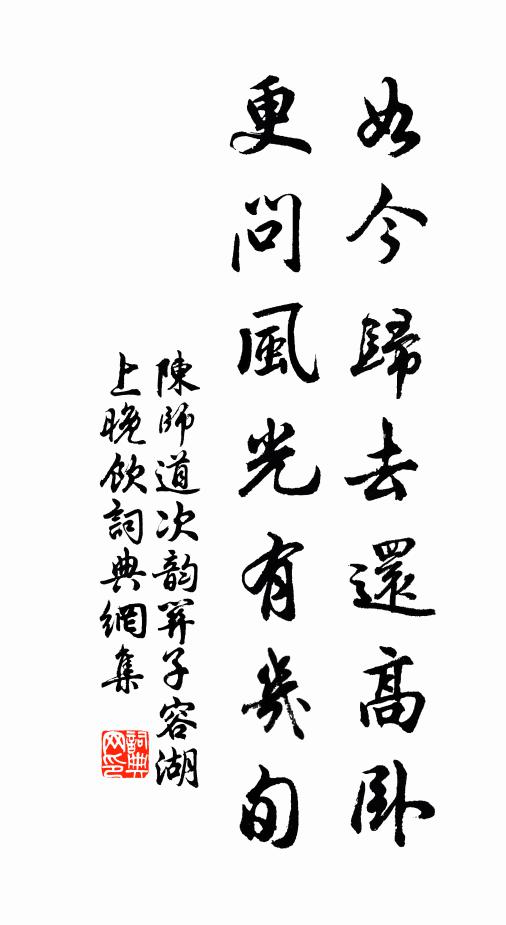 如今歸去還高卧
更問風光有幾旬
陳師道次韵關子容湖
上晚飲詞典網集
詞典
网印